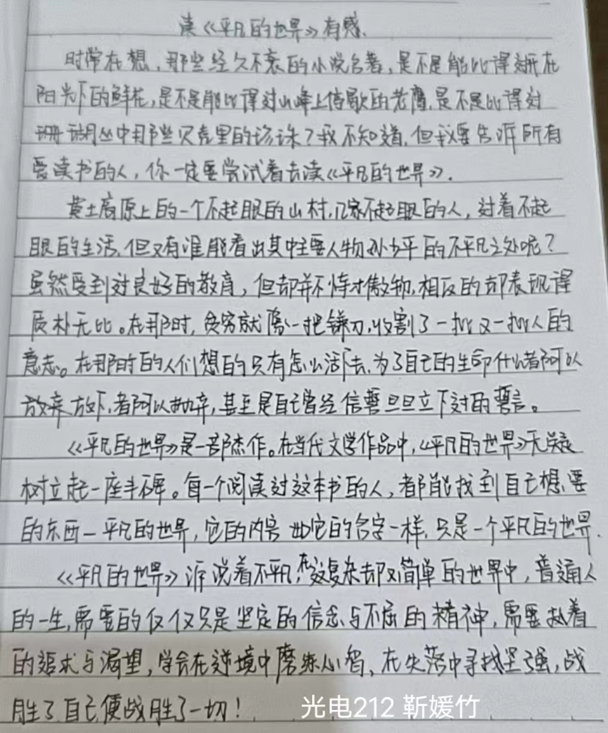 读《平凡的世界》有感.
时常在想,那些经久不衰的小说名著,是不是能比译翻开在
阳光下的鲜花,是不是能比译过山峰上傍歇的老鹰,是不是比译过
珊瑚丛中那些贝壳里的珍珠?我不知道,但我要告诉所有
爱读书的人,你一定要尝试着去读《平凡的世界》.
黄土高原上的一个不起眼的山村,几家不起眼的人,过着不起
眼的生活,但又有谁能看出其中主要人物孙少平的不平凡之处呢?
虽然受到过良好的教育,但却并不恃才傲物,相反的却表现得
质朴无比。在那时,贫穷就像一把镰刀,收割了一批又一批人的
意志。在那时的人们想的只有怎么活下去,为了自己的生命什么都可以
放弃放下,都可以抛弃,甚至是自己曾经信誓旦旦立下过的誓言。
《平凡的世界》是一部杰作。在当代文学作品中,《平凡的世界》无疑
树立起一座丰碑。每一个阅读过这本书的人,都能找到自己想要
的东西—平凡的世界,它的内容如它的名字一样,只是一个平凡的世界.
《平凡的世界》诉说着不平凡,在这复杂却又简单的世界中,普通人
的一生,需要的仅仅只是坚定的信念与不屈的精神,需要执着
的追求与渴望,学会在逆境中磨练心智、在失落中寻找坚强,战
胜了自己便战胜了一切!
光电212 靳媛竹